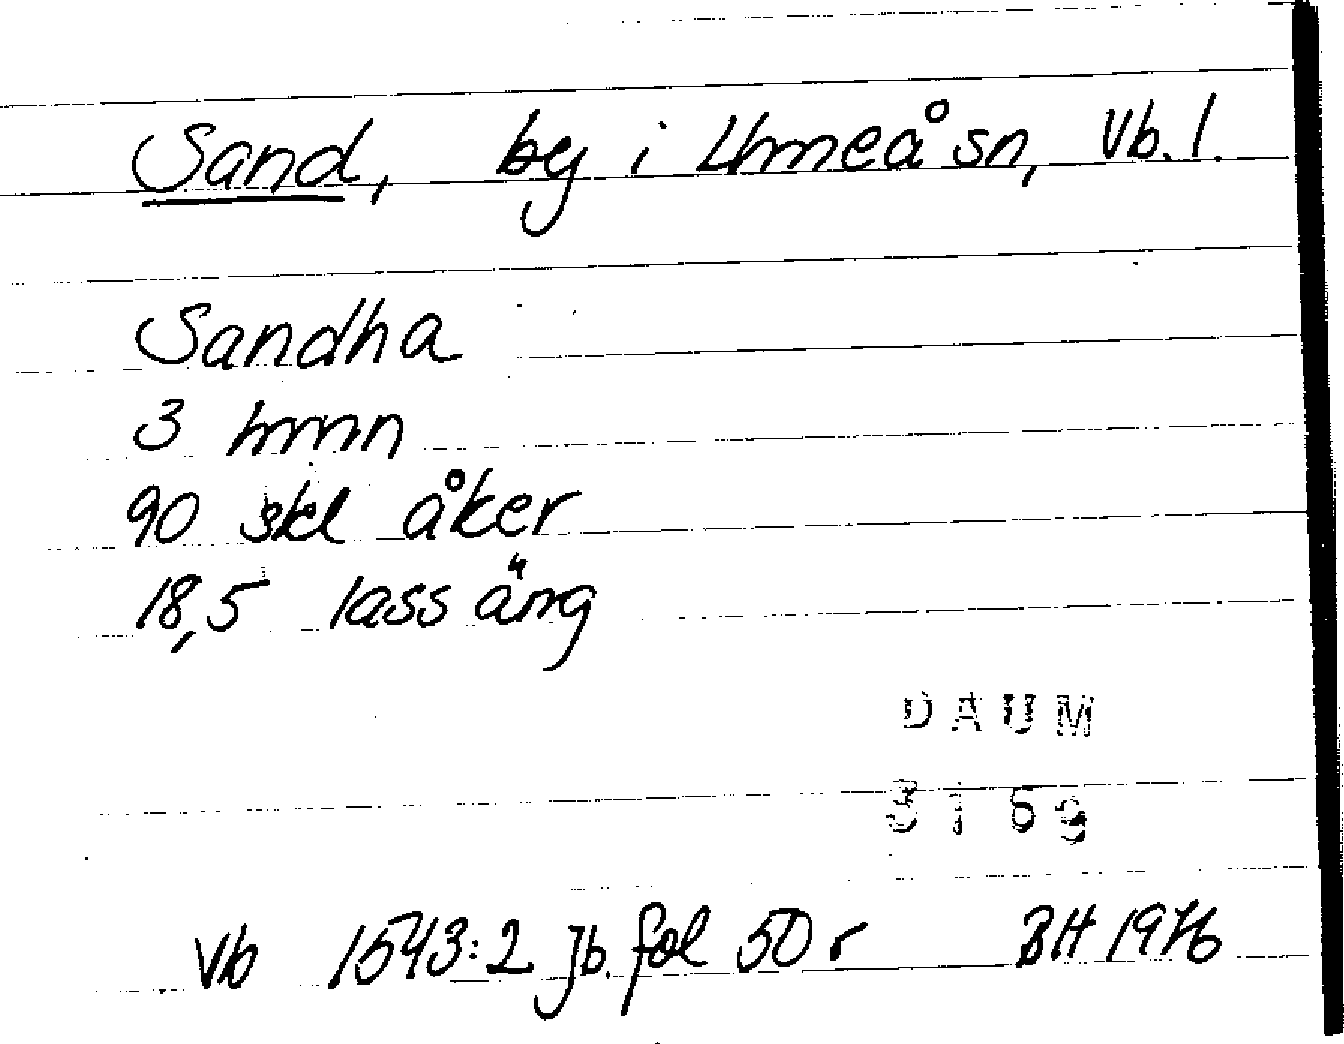 Sand, by i Umeå sn, Vb. l.
Sandha
3 hmn
90 skl åker
18,5 lass äng
DAUM
3169
Vb 1543:2 jb. fol 50 r BH 1976